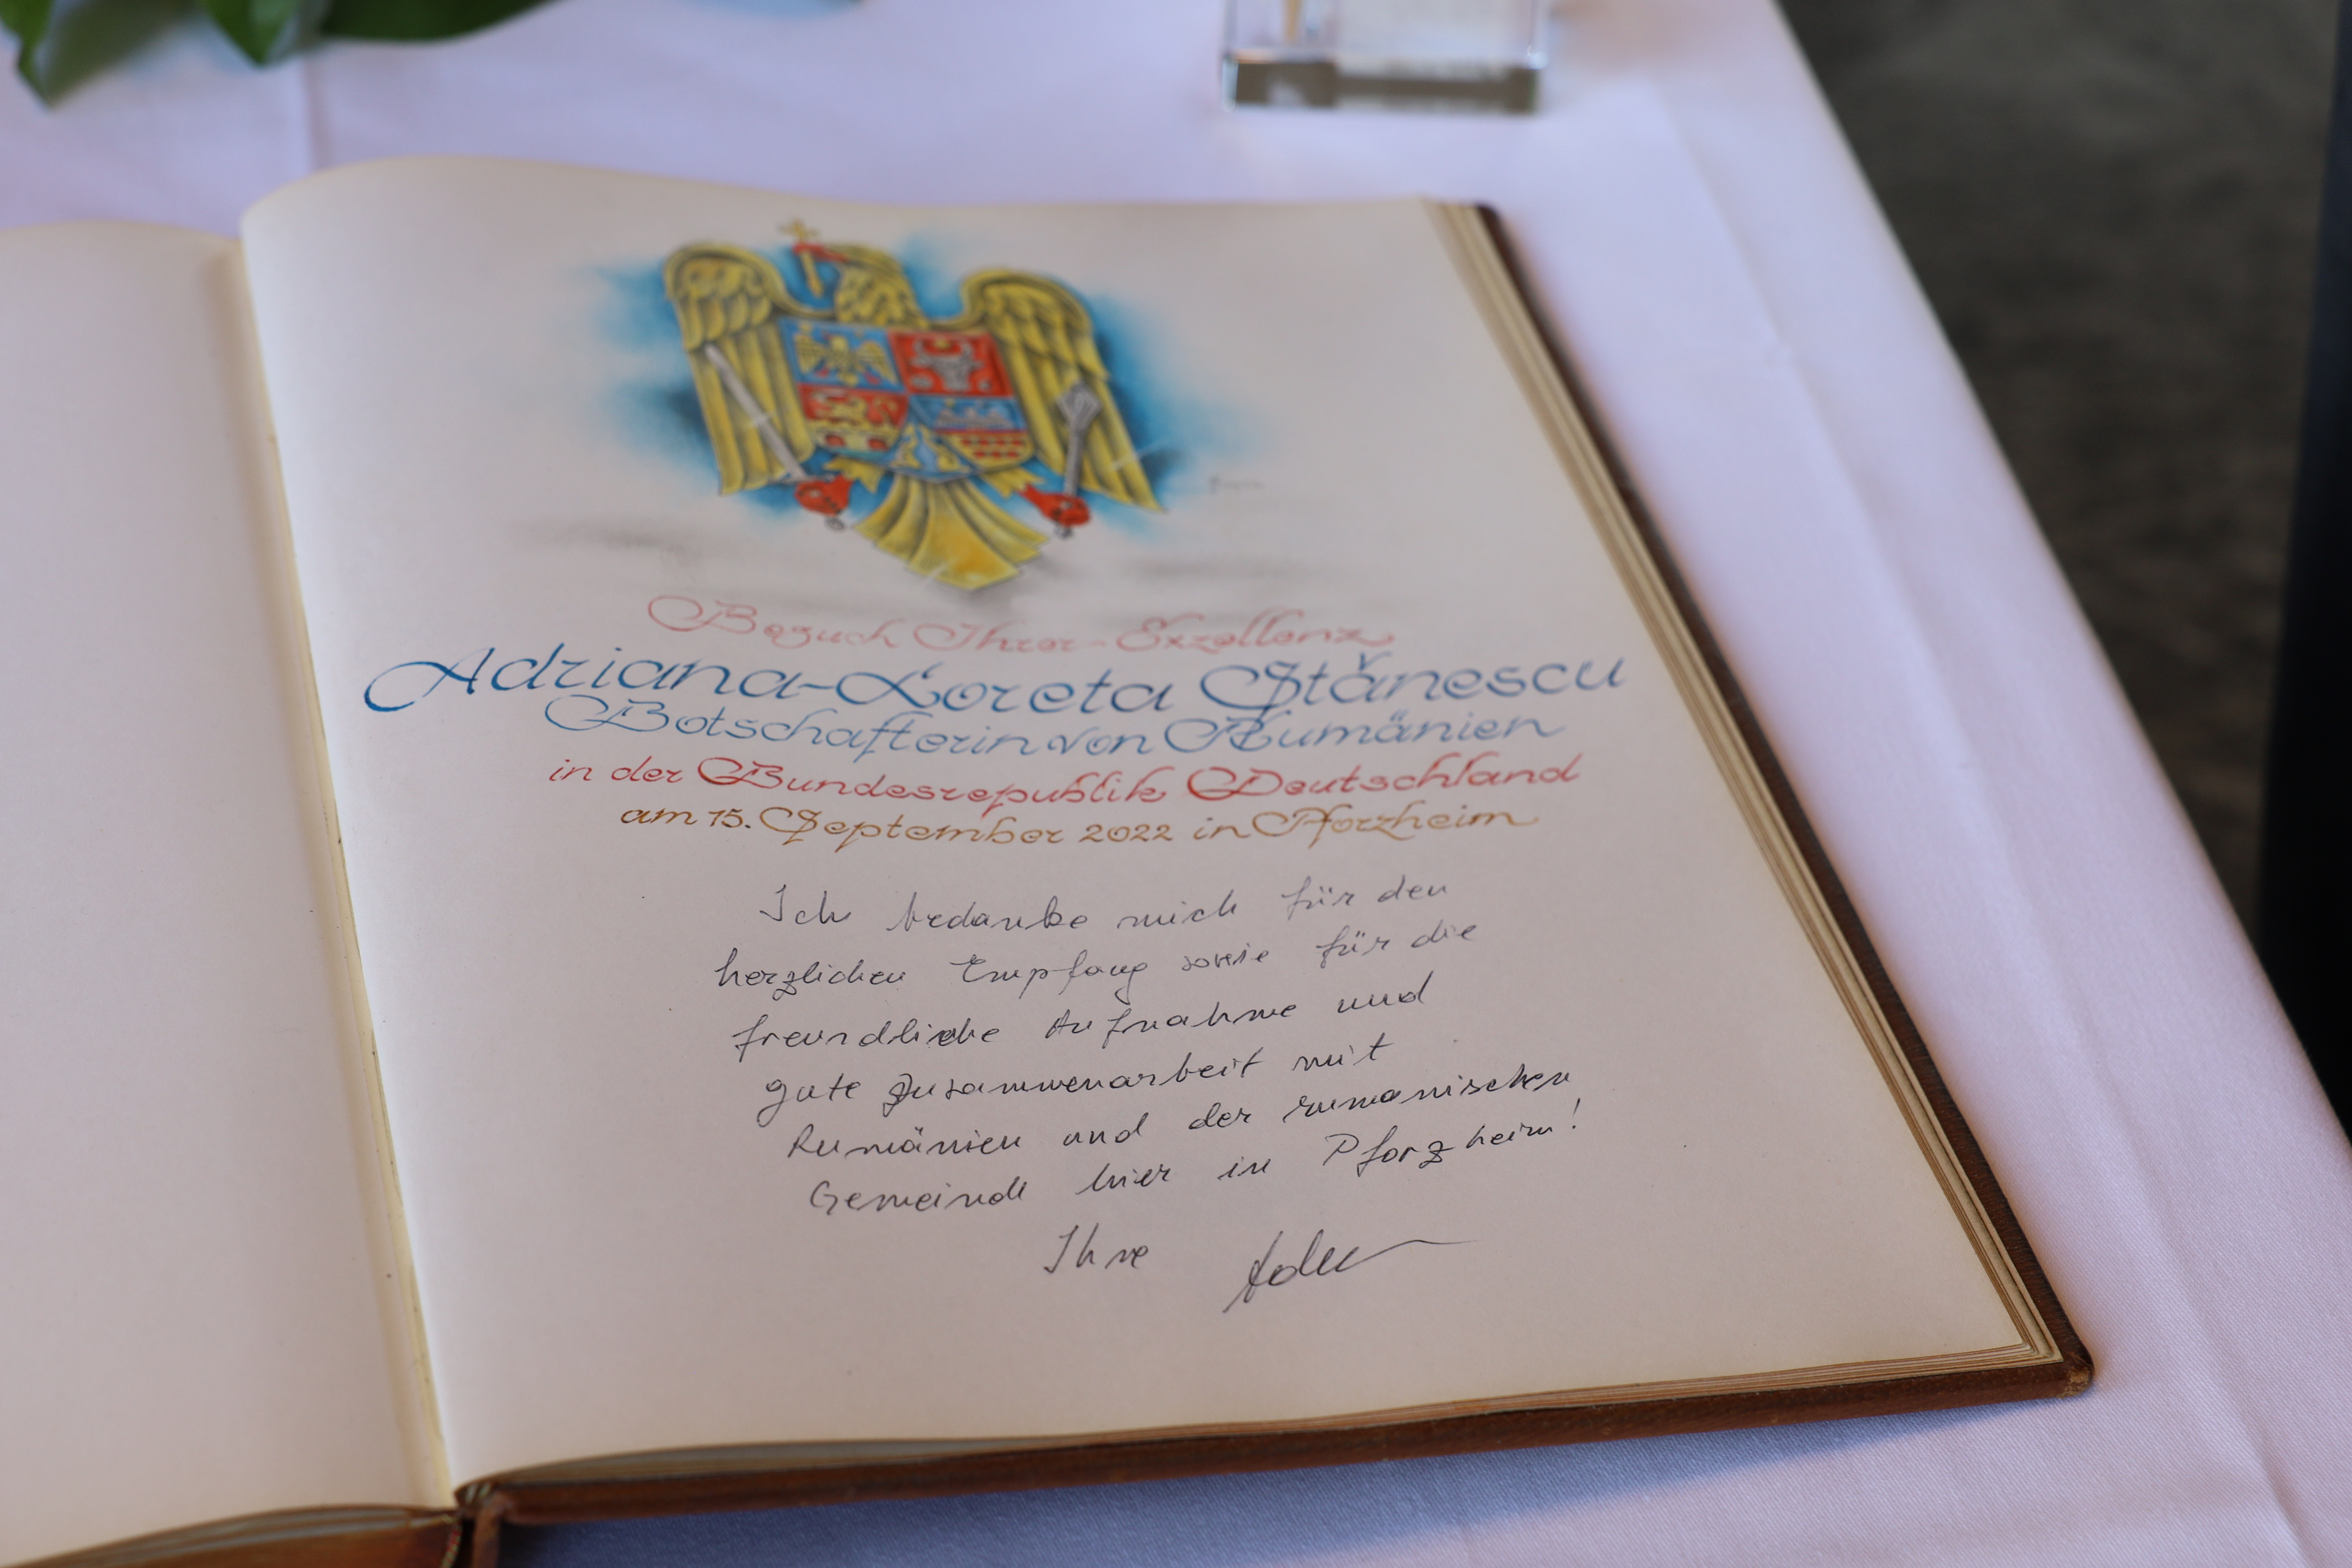 Besuch Ihrer-Exzellenz
Adriana-Loreta Stănescu
Botschafterin von Rumänien
in der Bundesrepublik Deutschland
am 15. September 2022 in Pforzheim
Ich bedanke mich für den
herzlichen Empfang sowie für die
freundliche Aufnahme und
gute Zusammenarbeit mit
Rumänien und der rumanischen
Gemeinde hier in Pforzheim!
Ihre